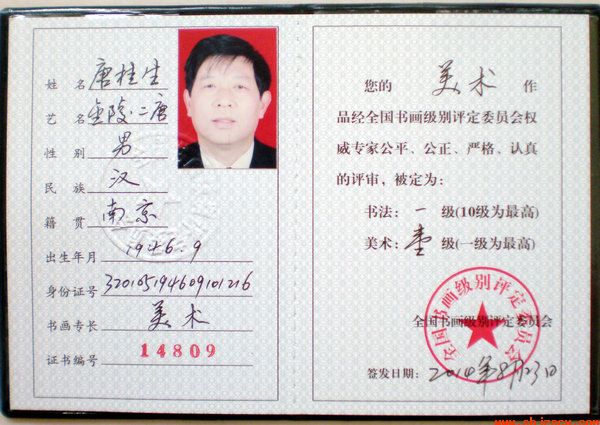 姓名 唐桂生
艺名 金陵·二唐
性别 男
民族 汉
籍贯 南京
出生年月 1946.9
身份证号 320105194609101216
书画专长 美术
证书编号 14809
您的 美术 作
品经全国书画级别评定委员会权
威专家公平、公正、严格、认真
的评审，被定为：
书法：一 级(10级为最高)
美术：壹 级(一级为最高)
全国书画级别评定委员会
全国书画级别评定委员会
签发日期：2014年8月23日